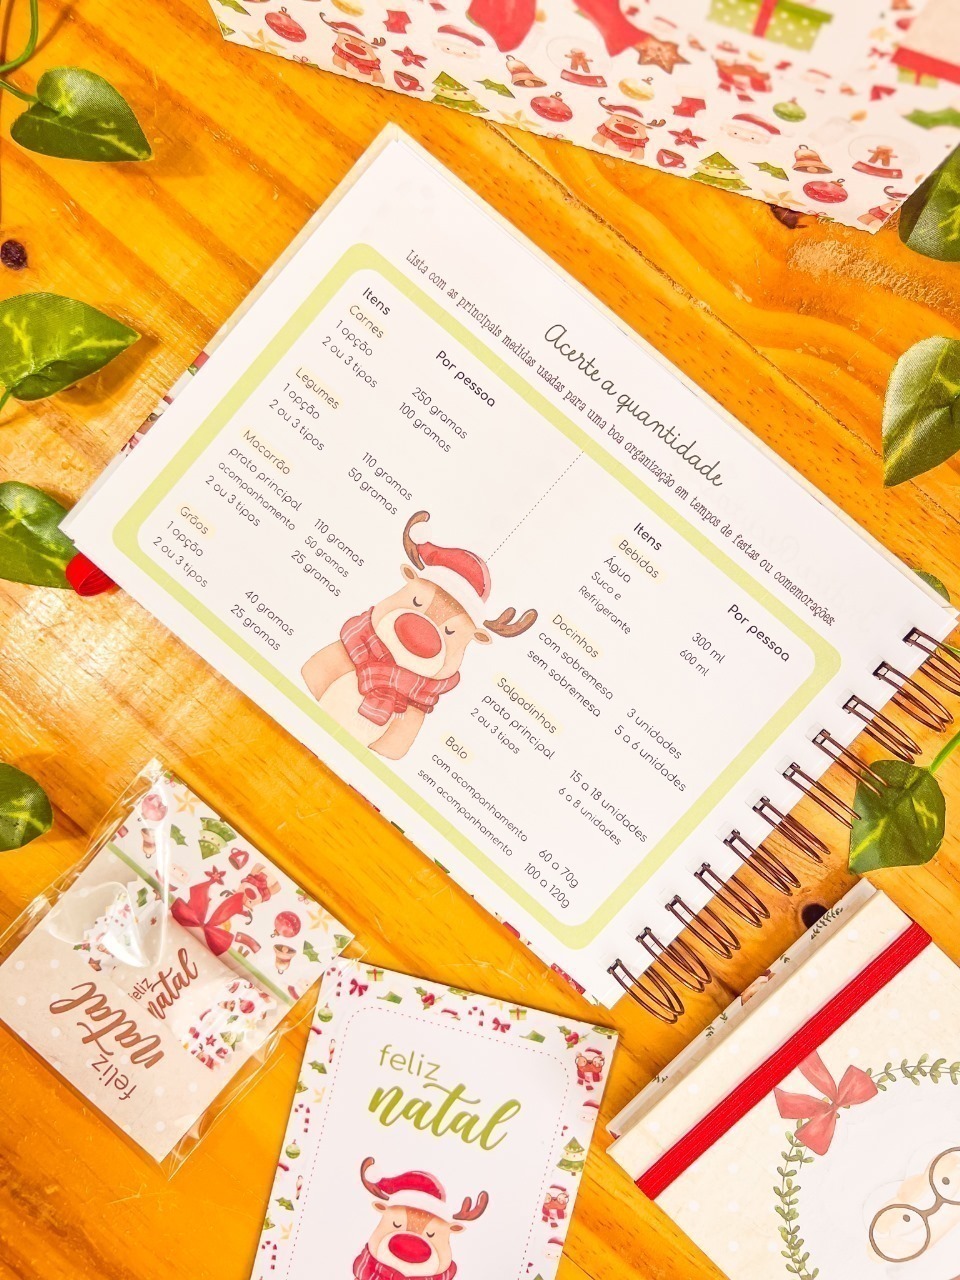 Acerte a quantidade
Lista com as principais medidas usadas para uma boa organização em tempos de festas ou comemorações.
Itens
Por pessoa
Carnes
1 opção 250 gramas
2 ou 3 tipos 100 gramas
Legumes
1 opção 110 gramas
2 ou 3 tipos 50 gramas
Macarrão
prato principal 110 gramas
acompanhamento 50 gramas
2 ou 3 tipos 25 gramas
Grãos
1 opção 40 gramas
2 ou 3 tipos 25 gramas
Itens
Por pessoa
Bebidas
Água 300 ml
Suco e 600 ml
Refrigerante
Docinhos
com sobremesa 3 unidades
sem sobremesa 5 a 6 unidades
Salgadinhos
prato principal 15 a 18 unidades
2 ou 3 tipos 6 a 8 unidades
Bolo
com acompanhamento 60 a 70g
sem acompanhamento 100 a 120g
feliz
natal
feliz
natal
feliz
natal